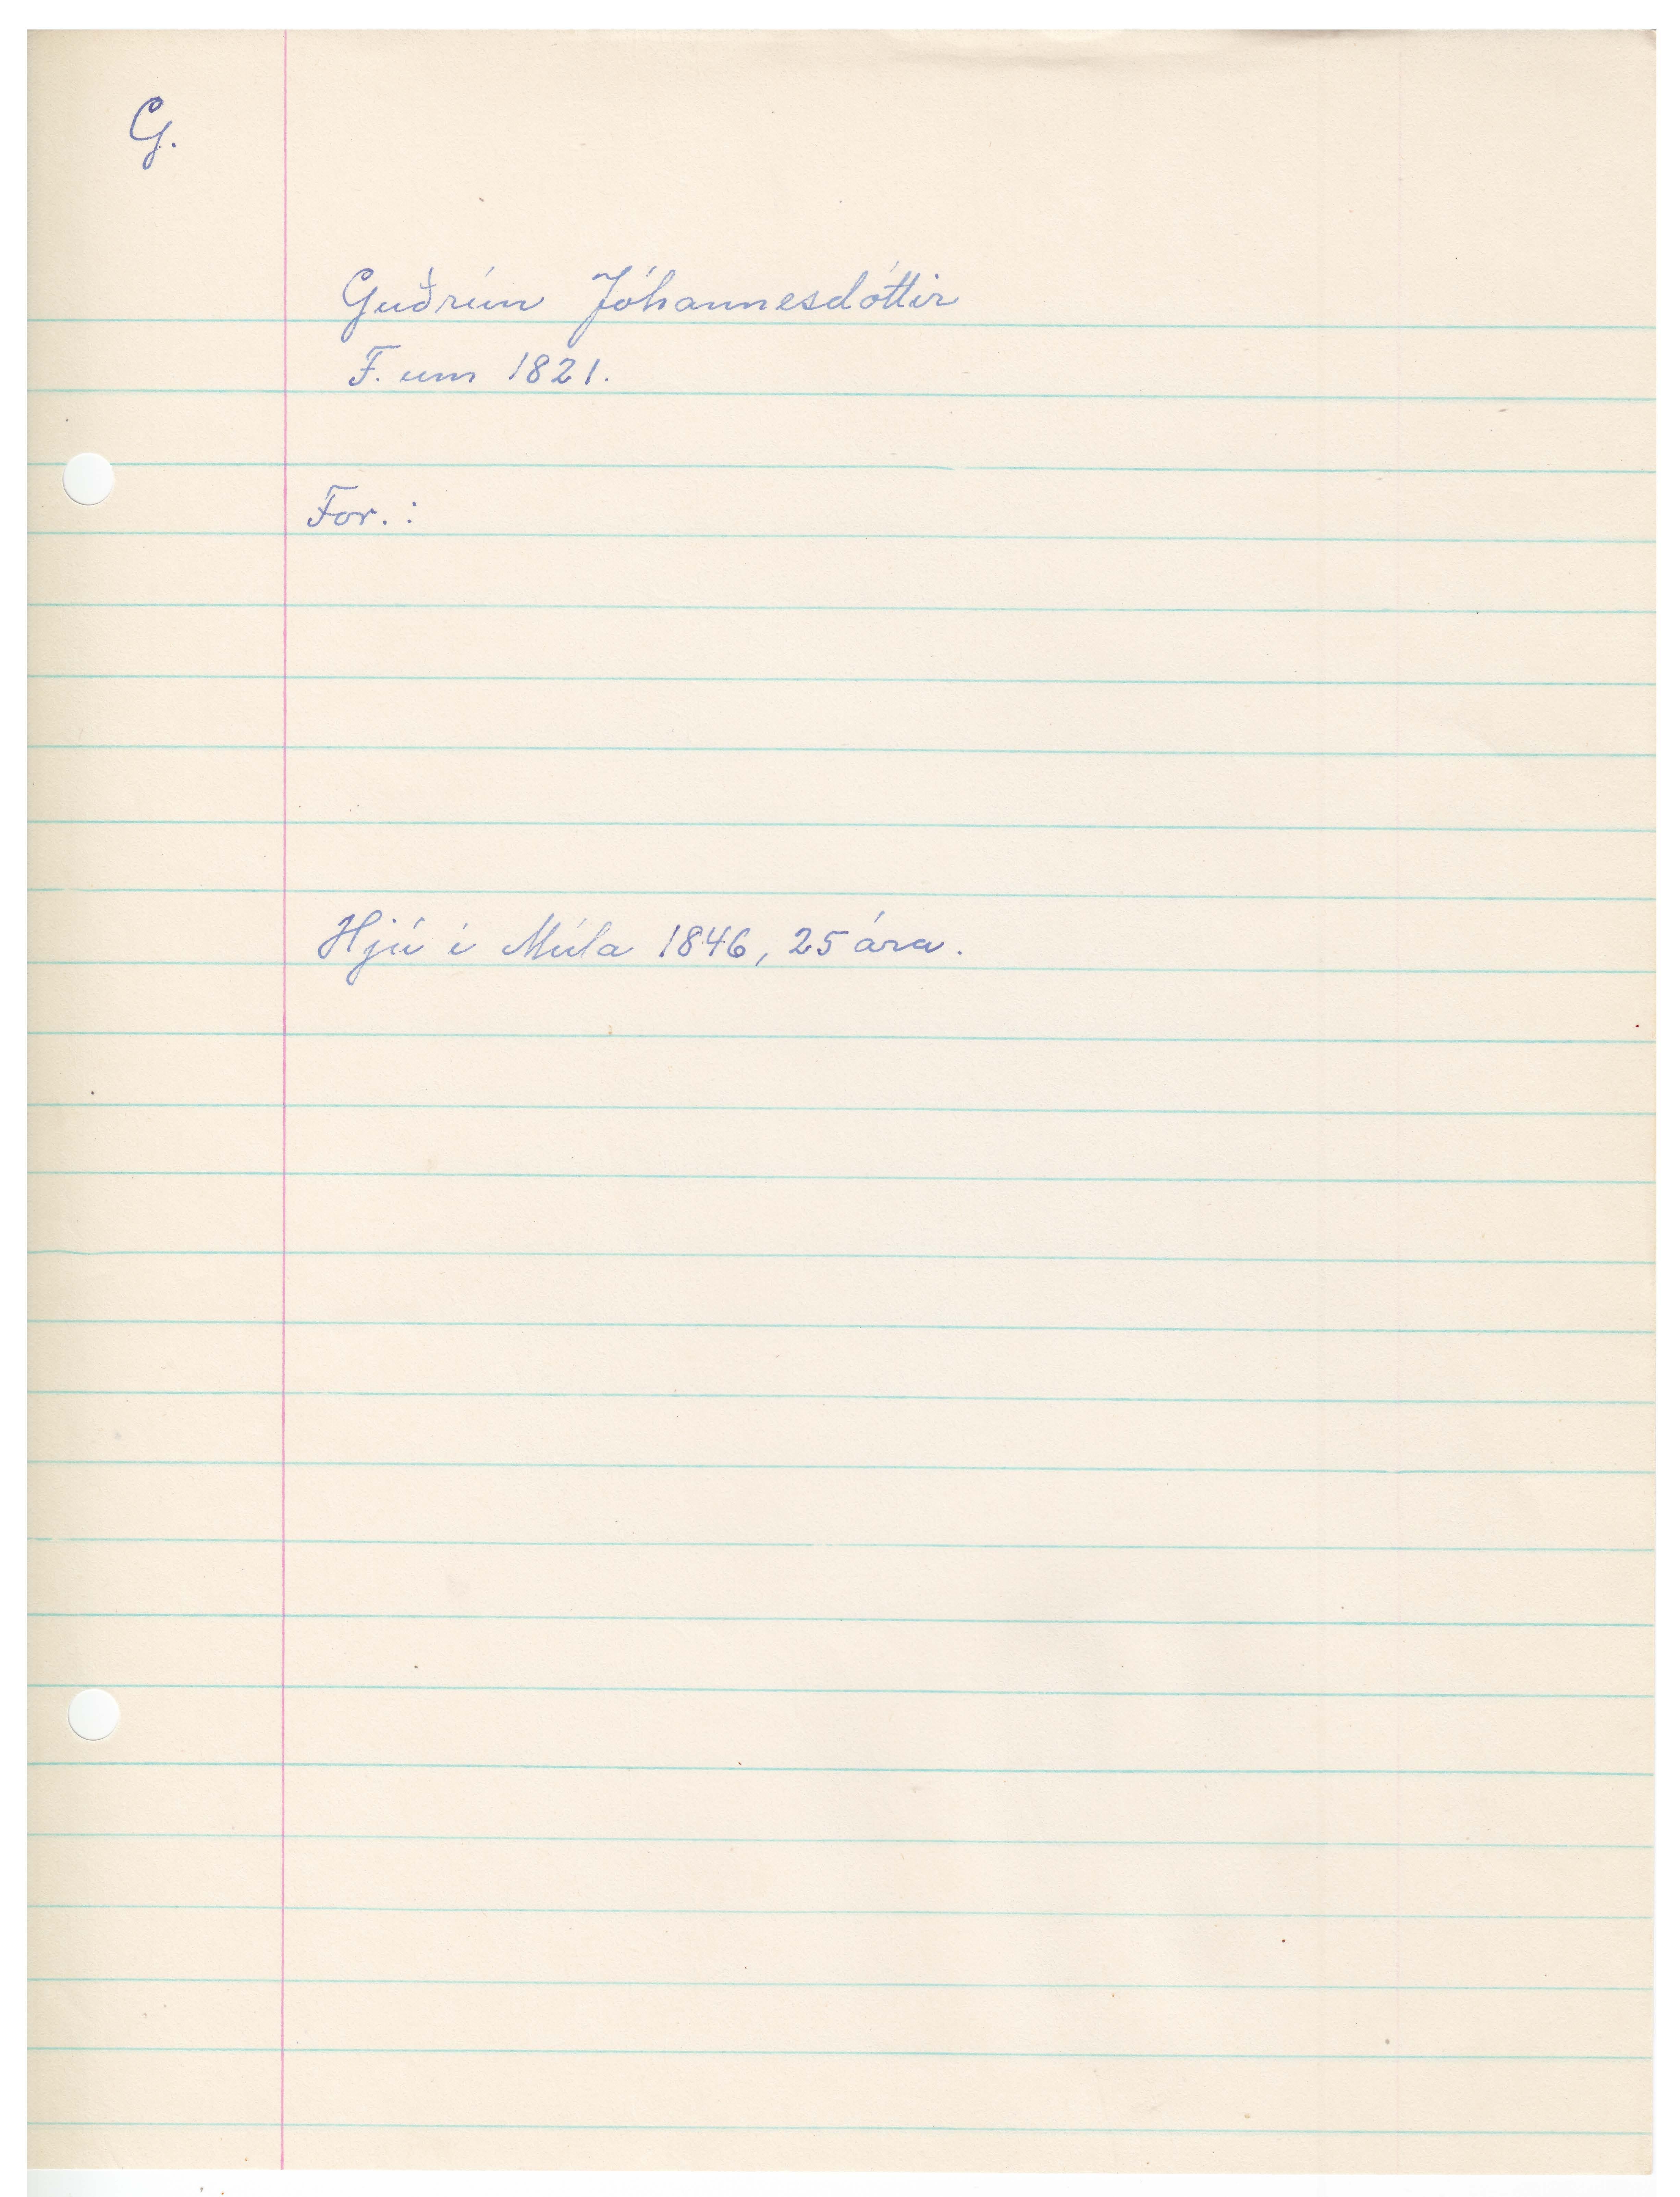 G.
Guðrún Jóhannesdóttir
F. um 1821.
For. :
Hjú í Múla 1846, 25 ára.